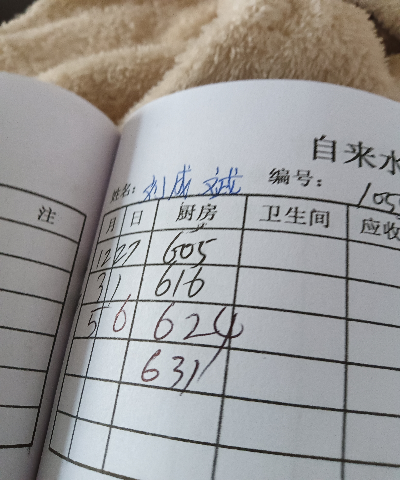 注
自来水
姓名：刘成斌 编号：105
月 日 厨房 卫生间 应收
12 27 605
3 1 616
5 6 624
631